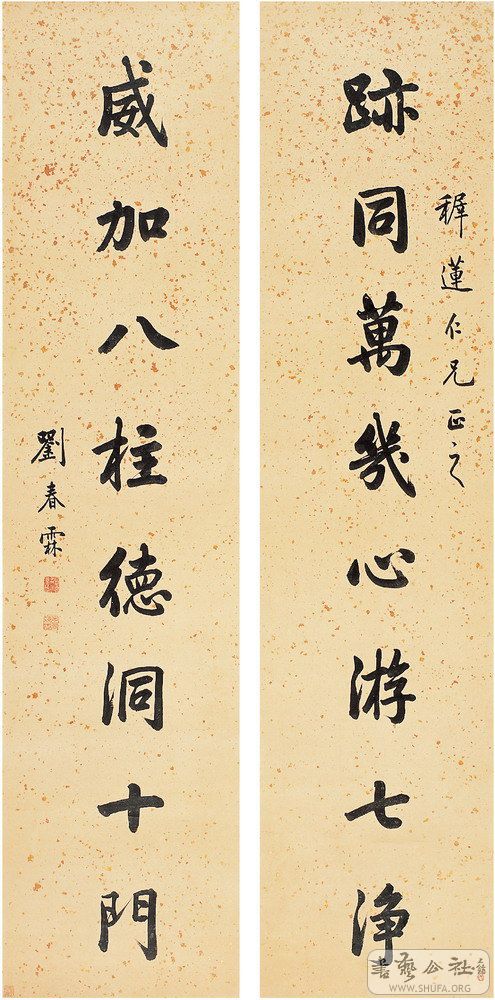 穉蓮仁兄正之
跡同萬幾心游七净
威加八柱德洞十門
劉春霖
書藝公社
WWW.SHUFA.ORG